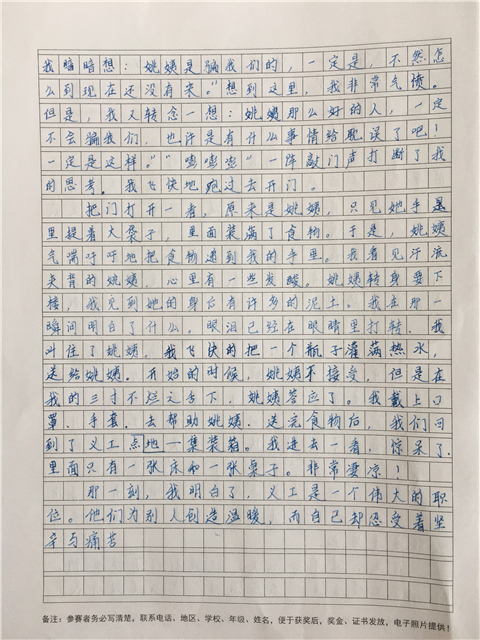 我暗暗想：姚姨是骗我们的，一定是，不然怎
么到现在还没有来。”想到这里，我非常气愤。
但是，我又转念一想：姚姨那么好的人，一定
不会骗我们，也许是有什么事情给耽误了吧！
一定是这样。“嘭嘭嘭”一阵敲门声打断了我
的思考。我飞快地跑过去开门。
把门打开一看，原来是姚姨，只见她手
里提着大袋子，里面装满了食物。于是，姚姨
气喘吁吁地把食物递到我的手里。我看见汗流
夹背的姚姨，心里有一些发酸。姚姨转身要下
楼，我见到她的身台有许多的泥土。我在那一
瞬间明白了什么。眼泪已经在眼睛里打转，我
叫住了姚姨，我飞快的把一个瓶子灌满热水，
送给姚姨。开始的时候，姚姨不接受，但是在
我的三寸不烂之舌下，姚姨答应了。我戴上口
罩、手套、去帮助姚姨。送完食物后，我们回
到了义工点地一集装箱。我进去一看，惊呆了．
里面只有一张床和一张桌子。非常凄凉！
那一刻，我明白了，义工是一个伟大的职
位。他们为别人创造温暖，而自己却忍受着坚
辛与痛苦
备注：参赛者务必写清楚，联系电话、地区、学校、年级、姓名，便于获奖后，奖金、证书发放，电子照片提供！